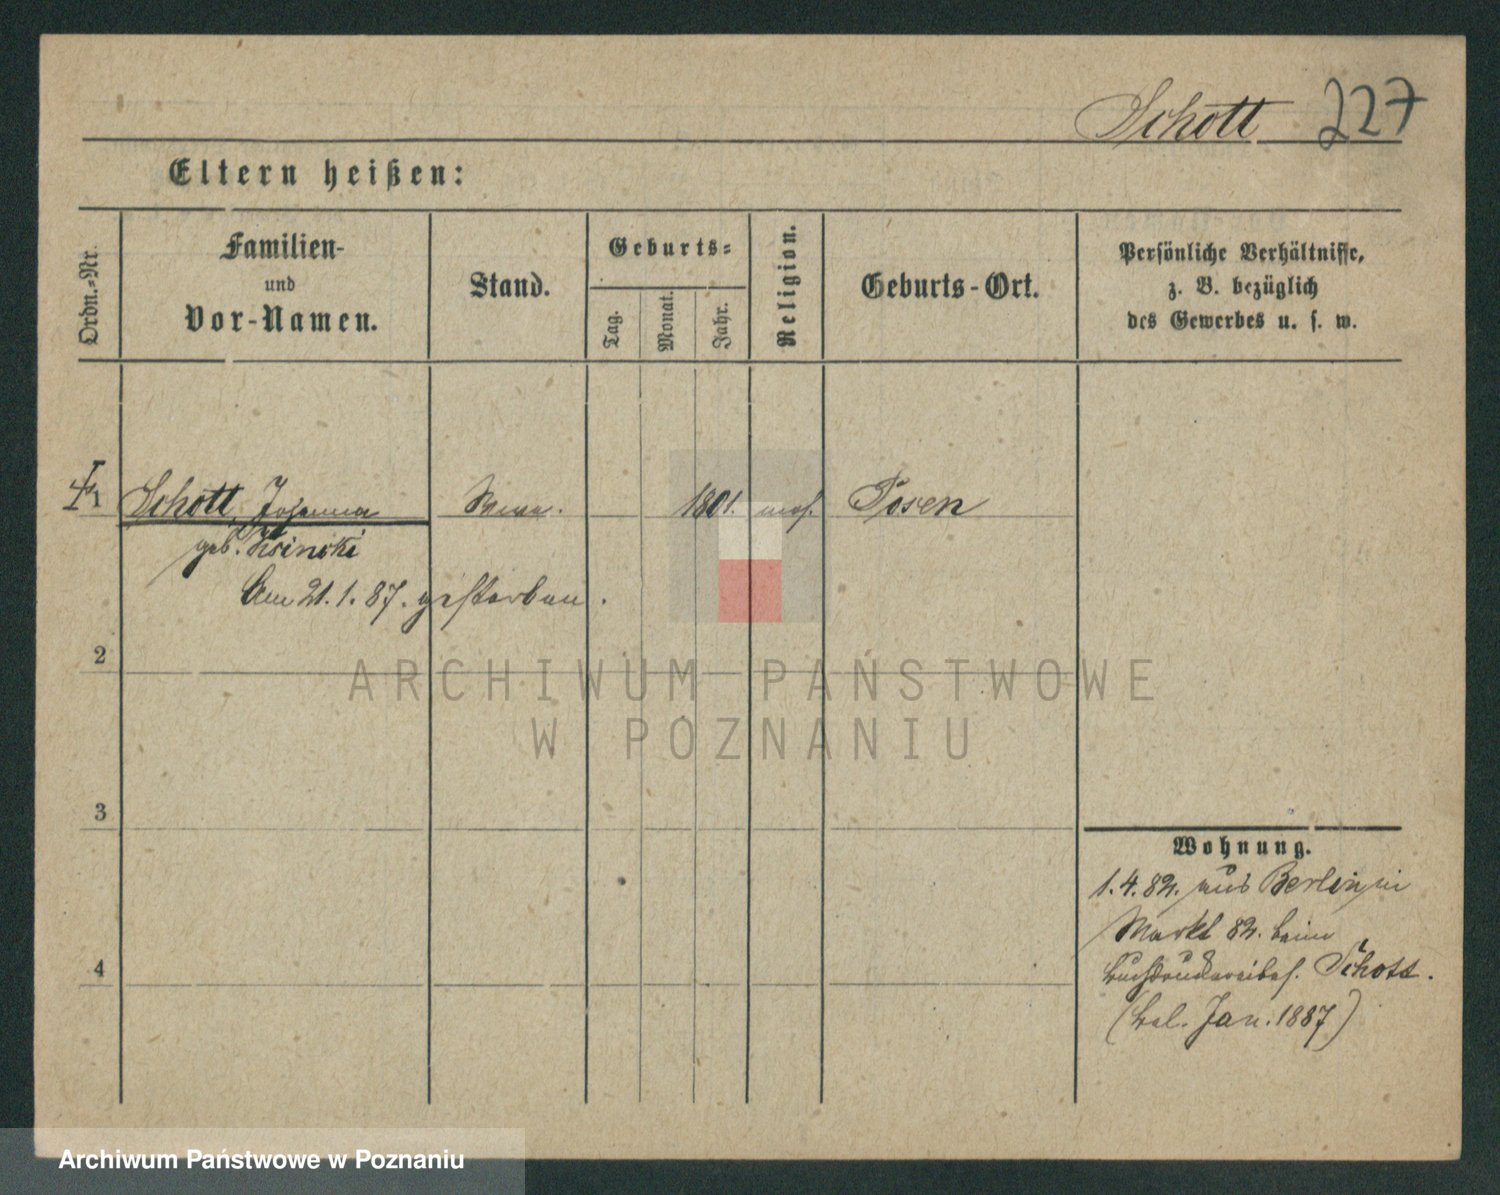 Schott 227
Eltern heißen:
Ordn.-Nr.
Familien-
und
Vor-Namen.
Stand.
Geburts-
Tag.
Monat.
Jahr.
Religion.
Geburts-Ort.
Persönliche Verhältnisse,
z. B. bezüglich
des Gewerbes u. s. w.
1 Schott, Johanna Wwe. 1801. mos. Posen
geb.
Am 21.1.87. gestorben.
2
3
4
Wohnung.
1.4.82. aus Berlin in
Markt 82. beim
Buchdruckereibes. Schott.
(bal. Jan. 1887)
ARCHIWUM PAŃSTWOWE
W POZNANIU
Archiwum Państwowe w Poznaniu